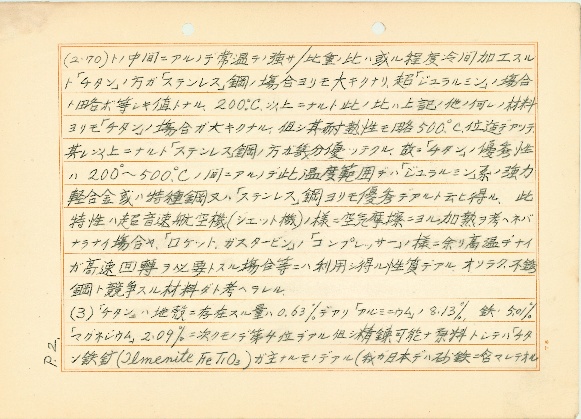 (2.70)トノ中間ニアルノデ常温デノ強サ/比重ノ比ハ或ル程度冷間加工スル
ト「チタン」ノ方ガ「ステンレス」鋼ノ場合ヨリモ大キクナリ、超「ジュラルミン」ノ場合
ト略ボ等シキ値トナル。200°C.以上ニナルト此ノ比ハ上記ノ他ノ何レノ材料
ヨリモ「チタン」ノ場合ガ大キクナル。但シ其耐熱性モ略500°C.位迄デアッテ、
其レ以上ニナルト「ステンレス」鋼ノ方ガ幾分優ッテクル。故ニ「チタン」ノ優秀性
ハ200°~500°Cノ間ニアルノデ此ノ温度範囲デハ「ジュラルミン」系ノ強力
軽合金或ハ特種鋼又ハ「ステンレス」鋼ヨリモ優秀デアルト云ヒ得ル。此
特性ハ超音速航空機(ジェット機)ノ様ニ空気摩擦ニヨル加熱ヲ考ヘネバ
ナラナイ場合ヤ、「ロケット、ガスタービン」ノ「コンプレッサー」ノ様ニ余リ高温デナイ
ガ高速回轉ヲ必要トスル場合等ニハ利用シ得ル性質デアル。オソラク、不銹
鋼ト競争スル材料ダト考ヘラレル。
(3)「チタン」ハ地殻ニ存在スル量ハ0.63%デアリ「アルミニウム」8.13%、鉄5.01%
「マグネシウム」2.09%ニ次クモノデ第4位デアル但シ精錬可能ナ原料トシテハ「チタ
ン鉄鉱(Ilmenite FeTiO3)ガ主ナルモノデアル(我ガ日本デハ砂鉄ニ含マレテオル
P.2.